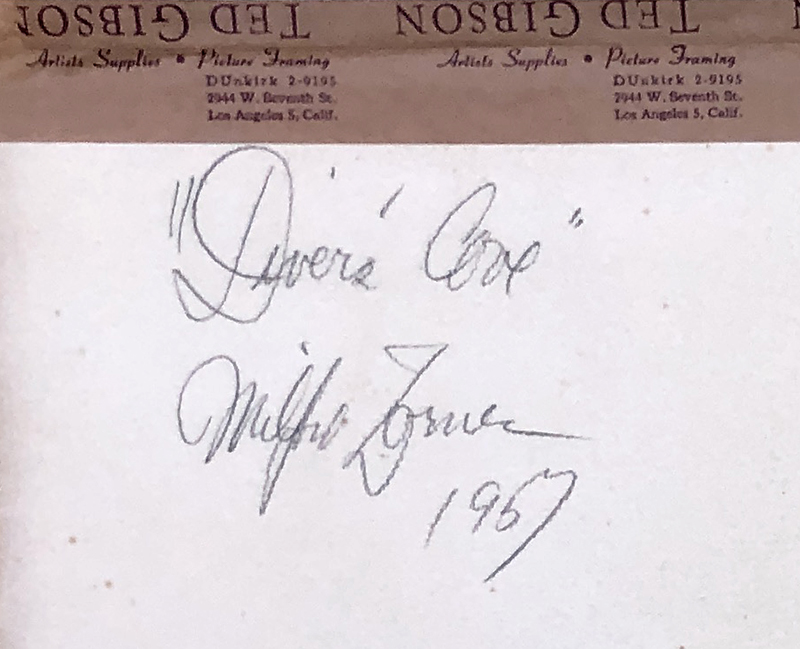 TED GIBSON TED GIBSON
Artists Supplies • Picture Framing Artists Supplies • Picture Framing
DUnkirk 2-9195 DUnkirk 2-9195
2944 W. Seventh St. 2944 W. Seventh St.
Los Angeles 5, Calif. Los Angeles 5, Calif.
"Divers' Cove"
Milford Zornes
1967